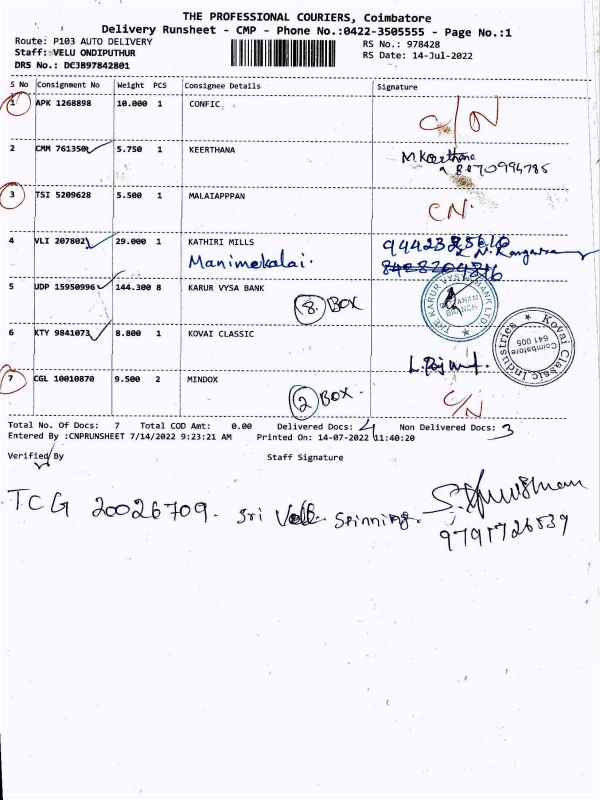 THE PROFESSIONAL COURIERS, Coimbatore
Delivery Runsheet - CMP - Phone No.:0422-3505555 - Page No.:1
Route: P103 AUTO DELIVERY RS No.: 978428
Staff: VELU ONDIPUTHUR RS Date: 14-Jul-2022
DRS No.: DCJB97842801
S No Consignment No Weight PCS Consignee Details Signature
1 APK 1268898 10.000 1 CONFIC C/N
2 CMM 761350 5.750 1 KEERTHANA M.Keerthana
3 TSI 5209628 5.500 1 MALAIAPPPAN CN.
4 VLI 207802 29.000 1 KATHIRI MILLS
Manimekalai.
5 UDP 15950996 144.300 8 KARUR VYSA BANK THE KARUR VYSYA BANK LTD
8. BOX BRANCH
6 KTY 9841073 8.800 1 KOVAI CLASSIC Kovai Classic Industries
Coimbatore
641 005
7 CGL 10010870 9.500 2 MINDOX C/N
2 BOX.
Total No. Of Docs: 7 Total COD Amt: 0.00 Delivered Docs: 4 Non Delivered Docs: 3
Entered By :CNPRUNSHEET 7/14/2022 9:23:21 AM Printed On: 14-07-2022 11:40:20
Verified By Staff Signature
TCG 20026709. Sri Spinning.
9791726539